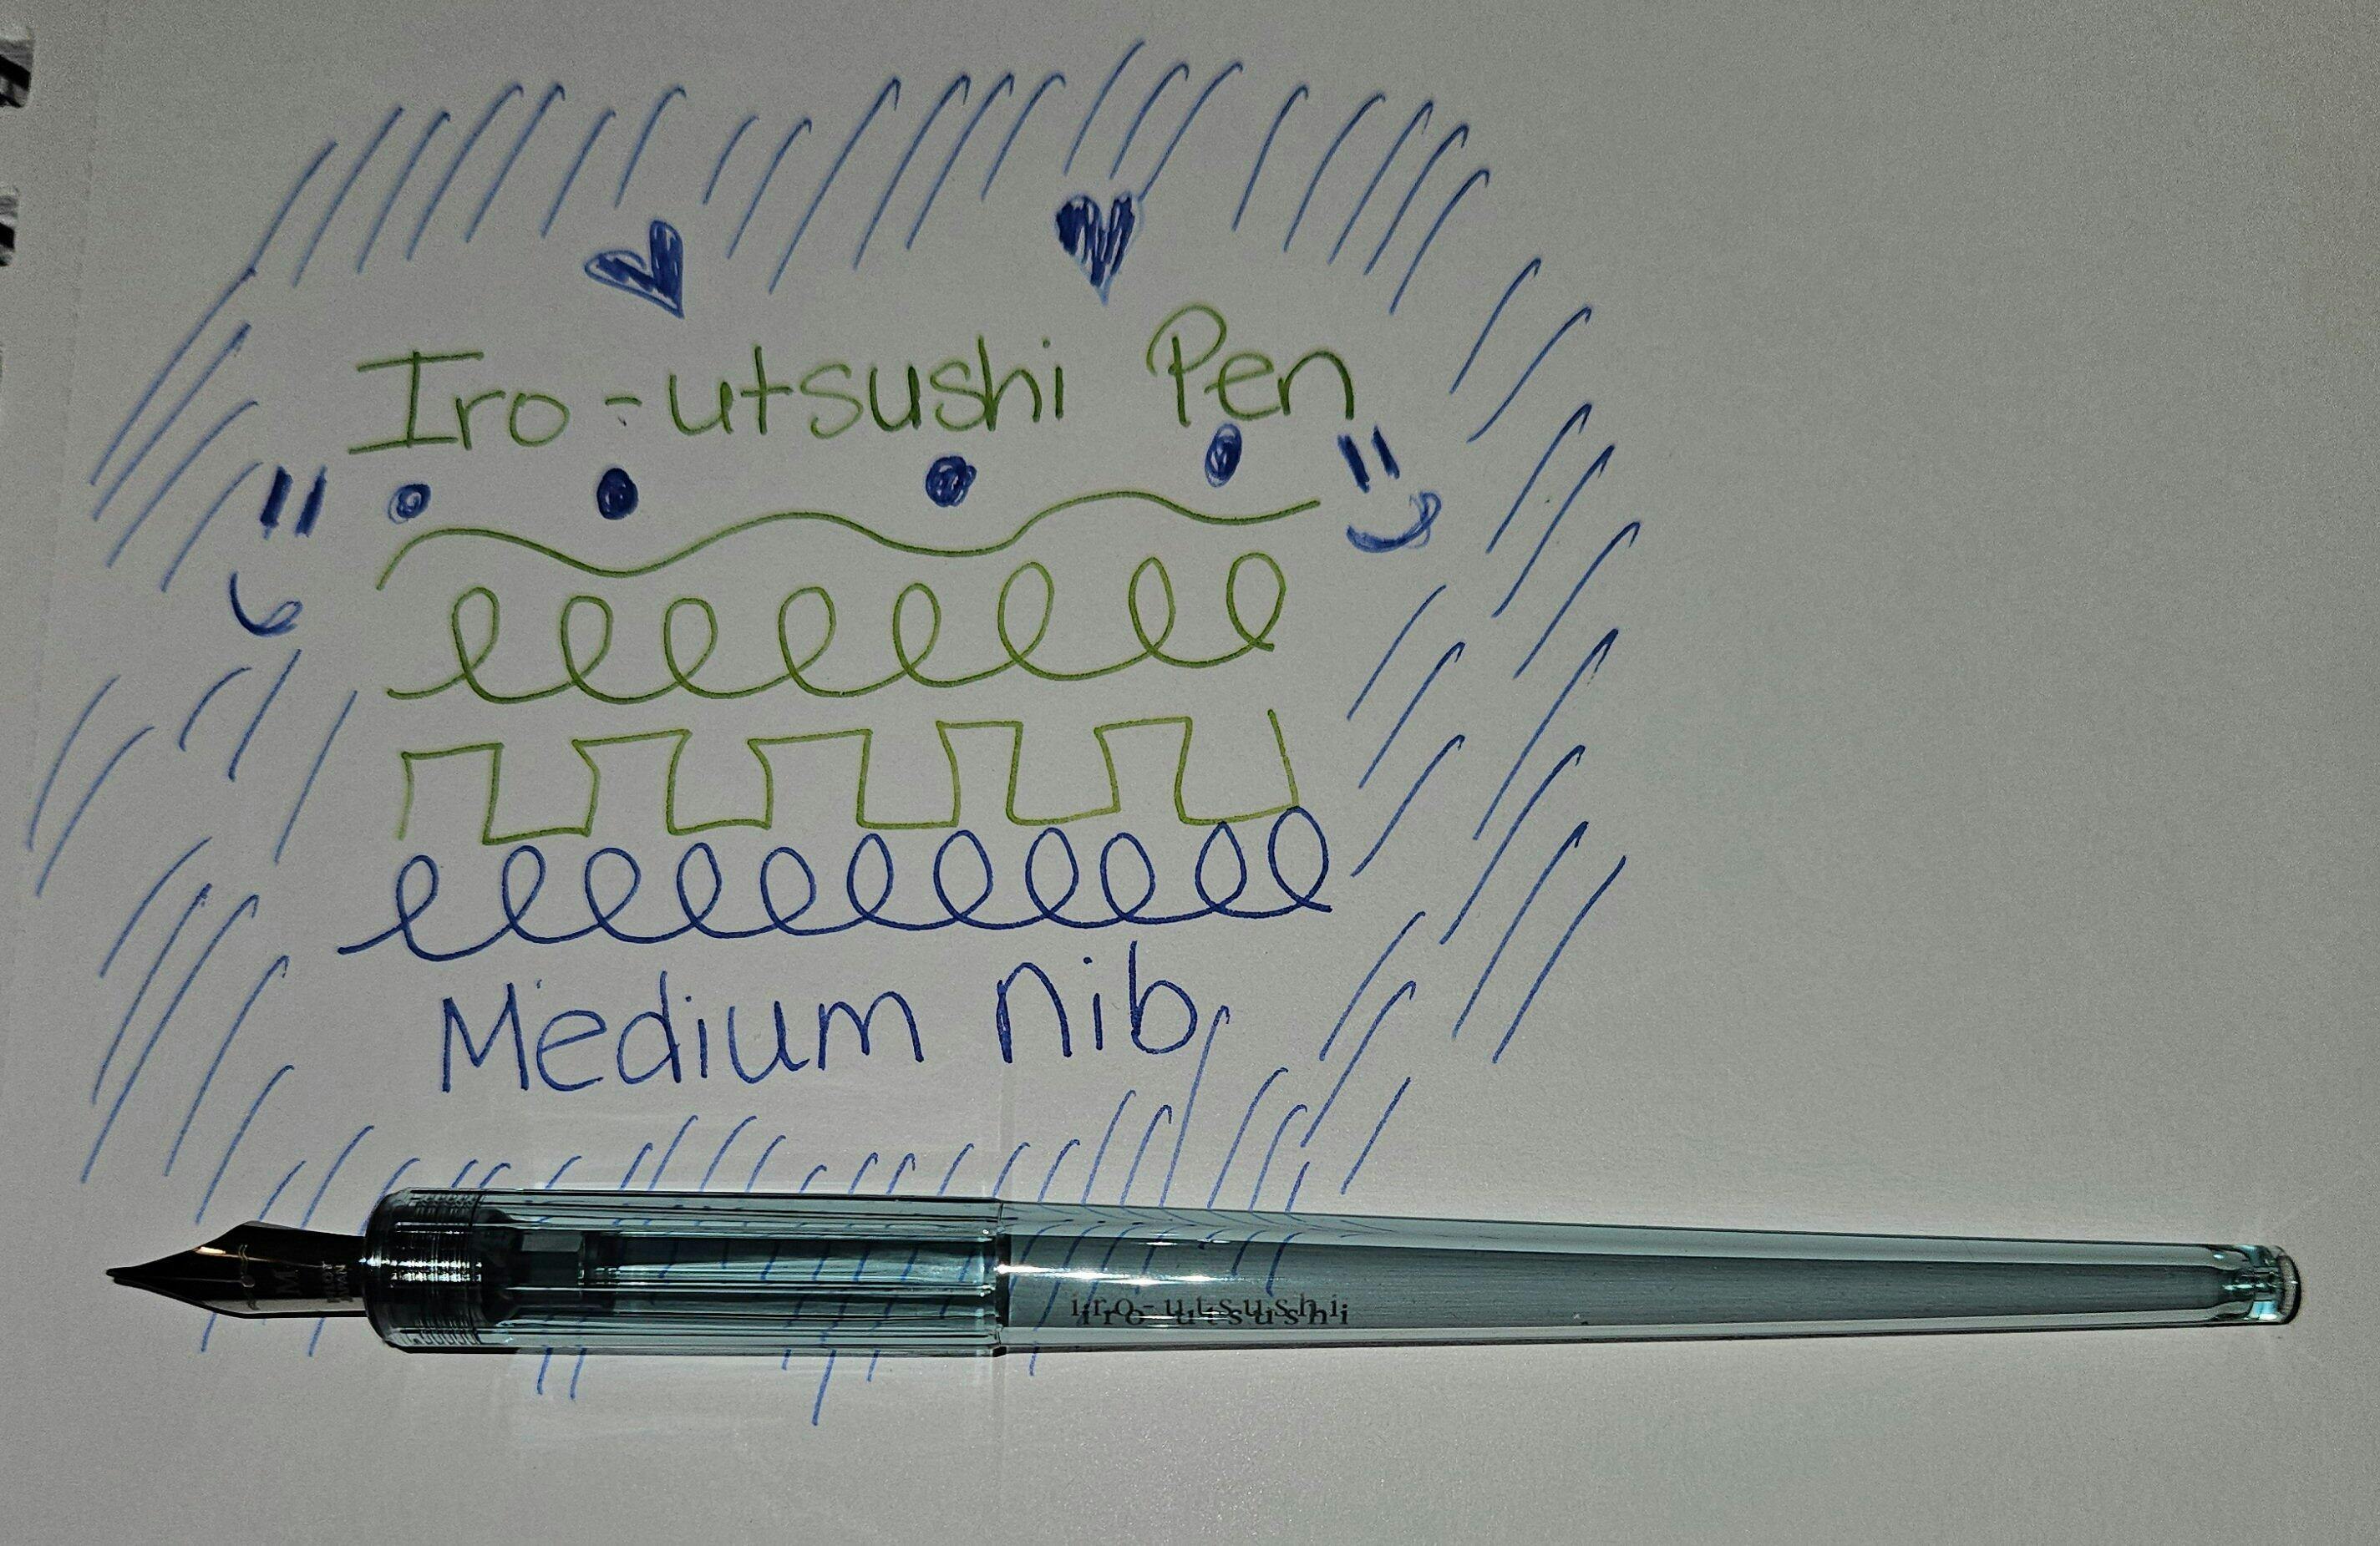 Iro-utsushi Pen
Medium nib
M
iro-utsushi